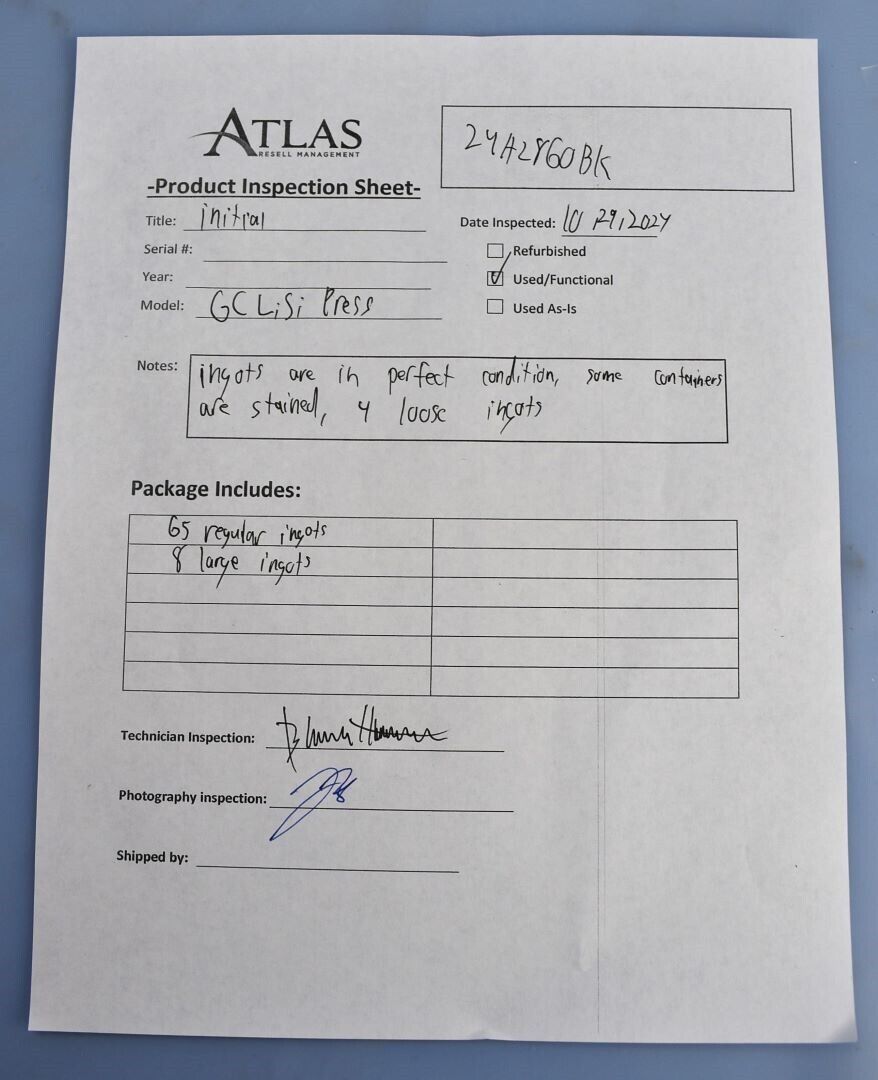 ATLAS
RESELL MANAGEMENT
24A2860BK
-Product Inspection Sheet-
Title: initial
Date Inspected: 10 29, 2024
Serial #:
Refurbished
Year:
Used/Functional
Model: GC LiSi Press
Used As-Is
Notes: ingots are in perfect condition, some containers
are stained, 4 loose ingots
Package Includes:
65 regular ingots
8 large ingots
Technician Inspection:
Photography inspection:
Shipped by: